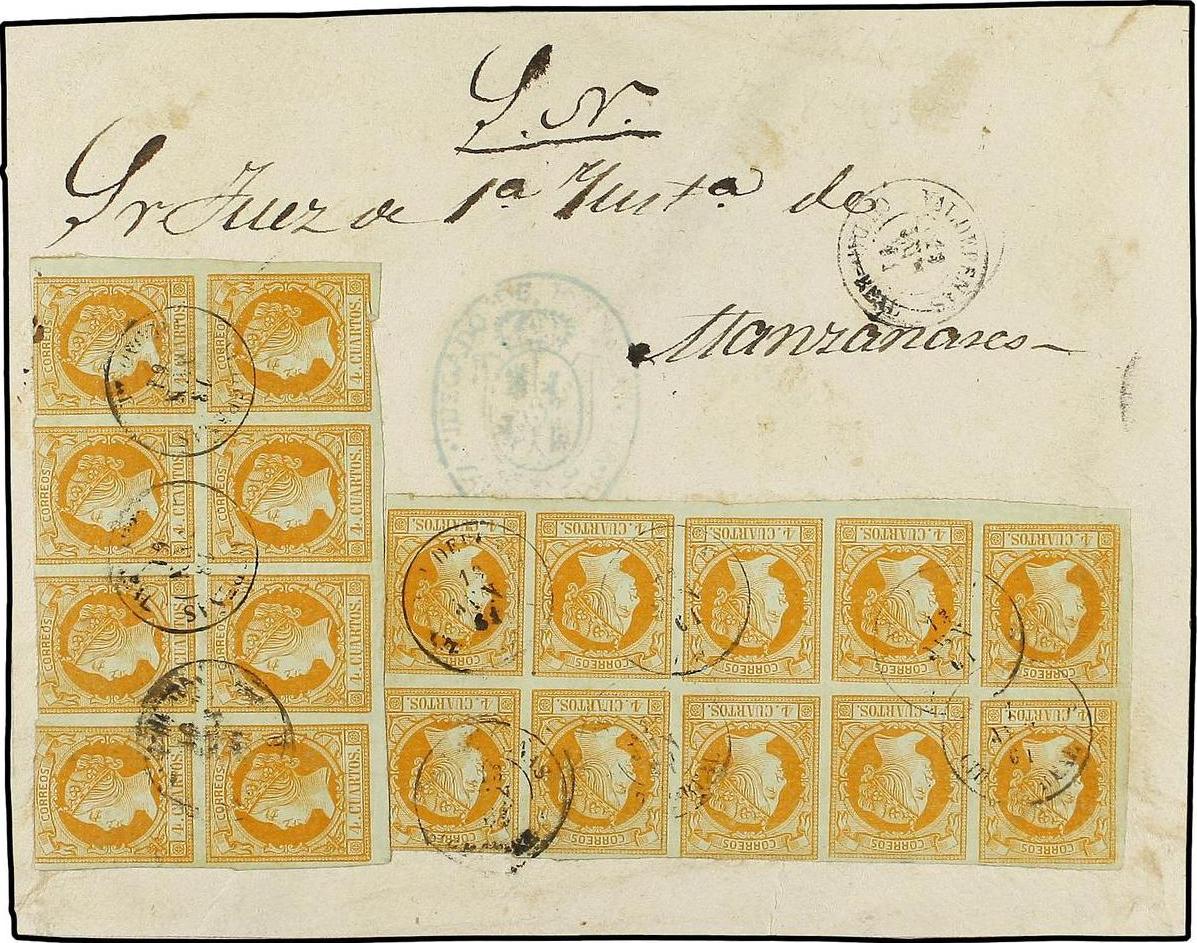 S. N.
Sr Juez de 1ª Instª de
Manzanares
VALDEPEÑAS
JUZGADO DE
CORREOS
4. CUARTOS.
CORREOS
4. CUARTOS.
CORREOS
4. CUARTOS.
CORREOS
4. CUARTOS.
CORREOS
4. CUARTOS.
CORREOS
4. CUARTOS.
CORREOS
4. CUARTOS.
CORREOS
4. CUARTOS.
4. CUARTOS.
CORREOS
4. CUARTOS.
CORREOS
4. CUARTOS.
CORREOS
4. CUARTOS.
CORREOS
4. CUARTOS.
CORREOS
4. CUARTOS.
CORREOS
4. CUARTOS.
CORREOS
4. CUARTOS.
CORREOS
4. CUARTOS.
CORREOS
4. CUARTOS.
CORREOS